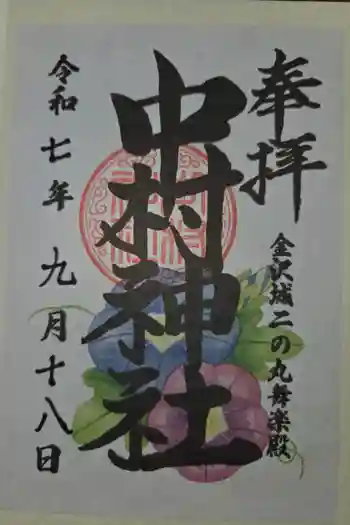 奉拝
金沢城二の丸舞楽殿
中村神社
令和七年九月十八日